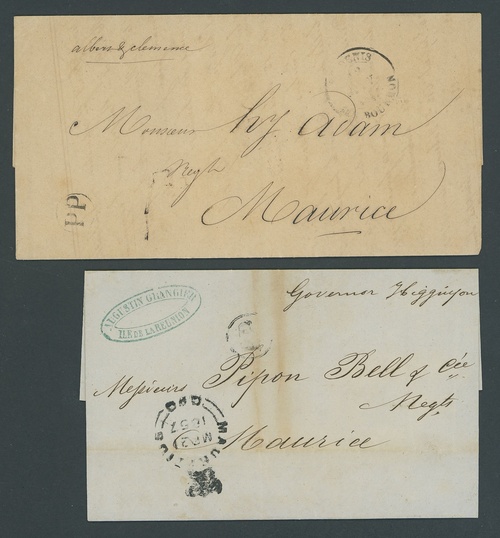 albius & clemence
Monsieur Hy. Adam
Negt
Maurice
PP
BOURBON
Governor Higginson
AUGUSTIN GRANGIER
ILE DE LA REUNION
Messieurs Pipon Bell & Cie
Negts
Maurice
MAURITIUS GPO
MR 2
1857